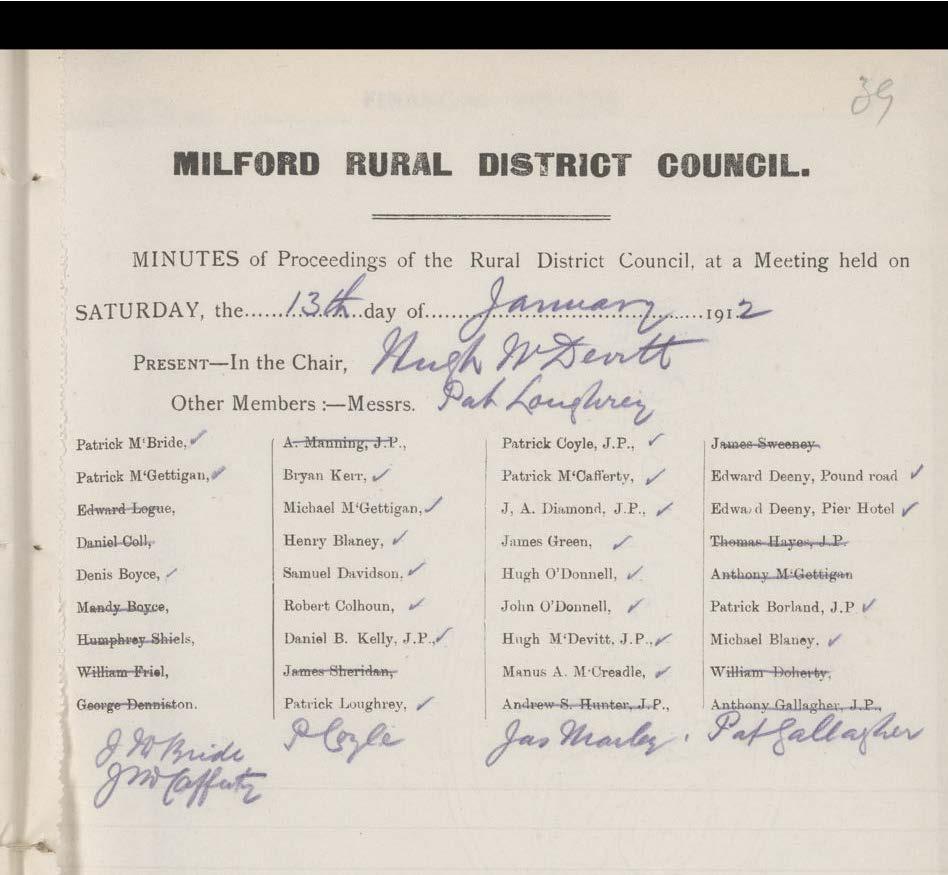 39
MILFORD RURAL DISTRICT COUNCIL.
MINUTES of Proceedings of the Rural District Council, at a Meeting held on
SATURDAY, the......13th..day of.......January.......1912
PRESENT—In the Chair, Hugh McDevitt
Other Members :—Messrs. Pat Loughrey
Patrick M'Bride, ✓
Patrick M'Gettigan, ✓
Edward Logue,
Daniel Coll,
Denis Boyce, ✓
Mandy Boyce,
Humphrey Shiels,
William Friel,
George Denniston.
J McBride
J McCafferty
A. Manning, J.P.,
Bryan Kerr, ✓
Michael M'Gettigan, ✓
Henry Blaney, ✓
Samuel Davidson, ✓
Robert Colhoun, ✓
Daniel B. Kelly, J.P., ✓
James Sheridan,
Patrick Loughrey, ✓
P Coyle
Patrick Coyle, J.P., ✓
Patrick M'Cafferty, ✓
J, A. Diamond, J.P., ✓
James Green, ✓
Hugh O'Donnell, ✓
John O'Donnell, ✓
Hugh M'Devitt, J.P., ✓
Manus A. M'Creadle, ✓
Andrew S. Hunter, J.P.,
Jas Marley.
James Sweeney
Edward Deeny, Pound road ✓
Edward Deeny, Pier Hotel ✓
Thomas Hayes, J.P.
Anthony M'Gettigan
Patrick Borland, J.P ✓
Michael Blaney, ✓
William Doherty,
Anthony Gallagher, J.P.,
Pat Gallagher